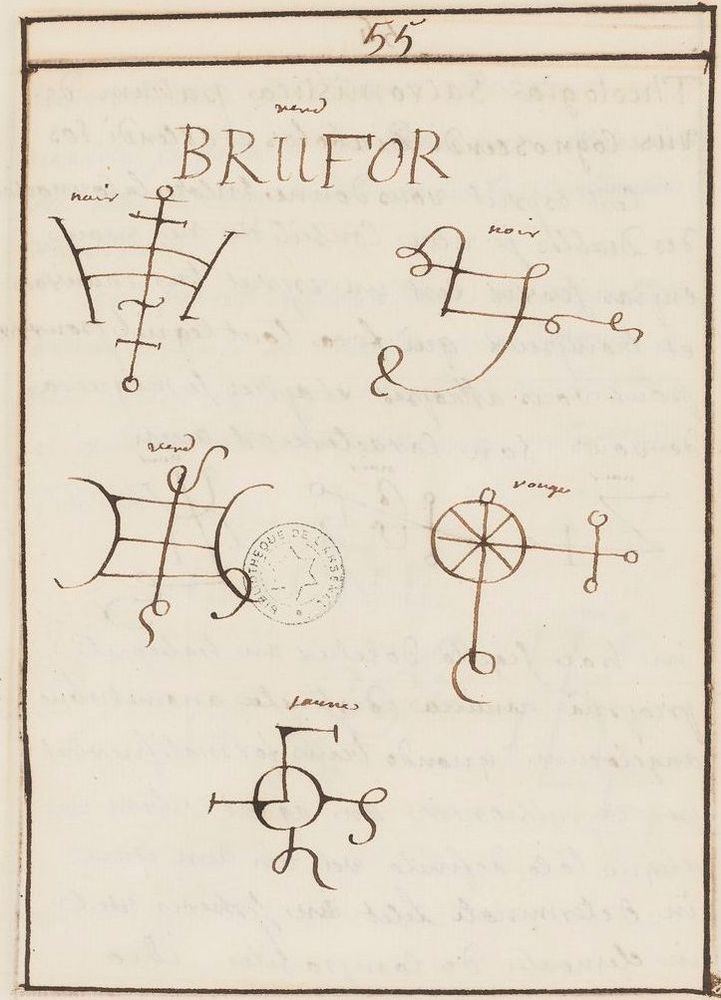 55
verd
BRUFOR
noir
noir
verd
rouge
BIBLIOTHEQUE DE L'ARSENAL
jaune